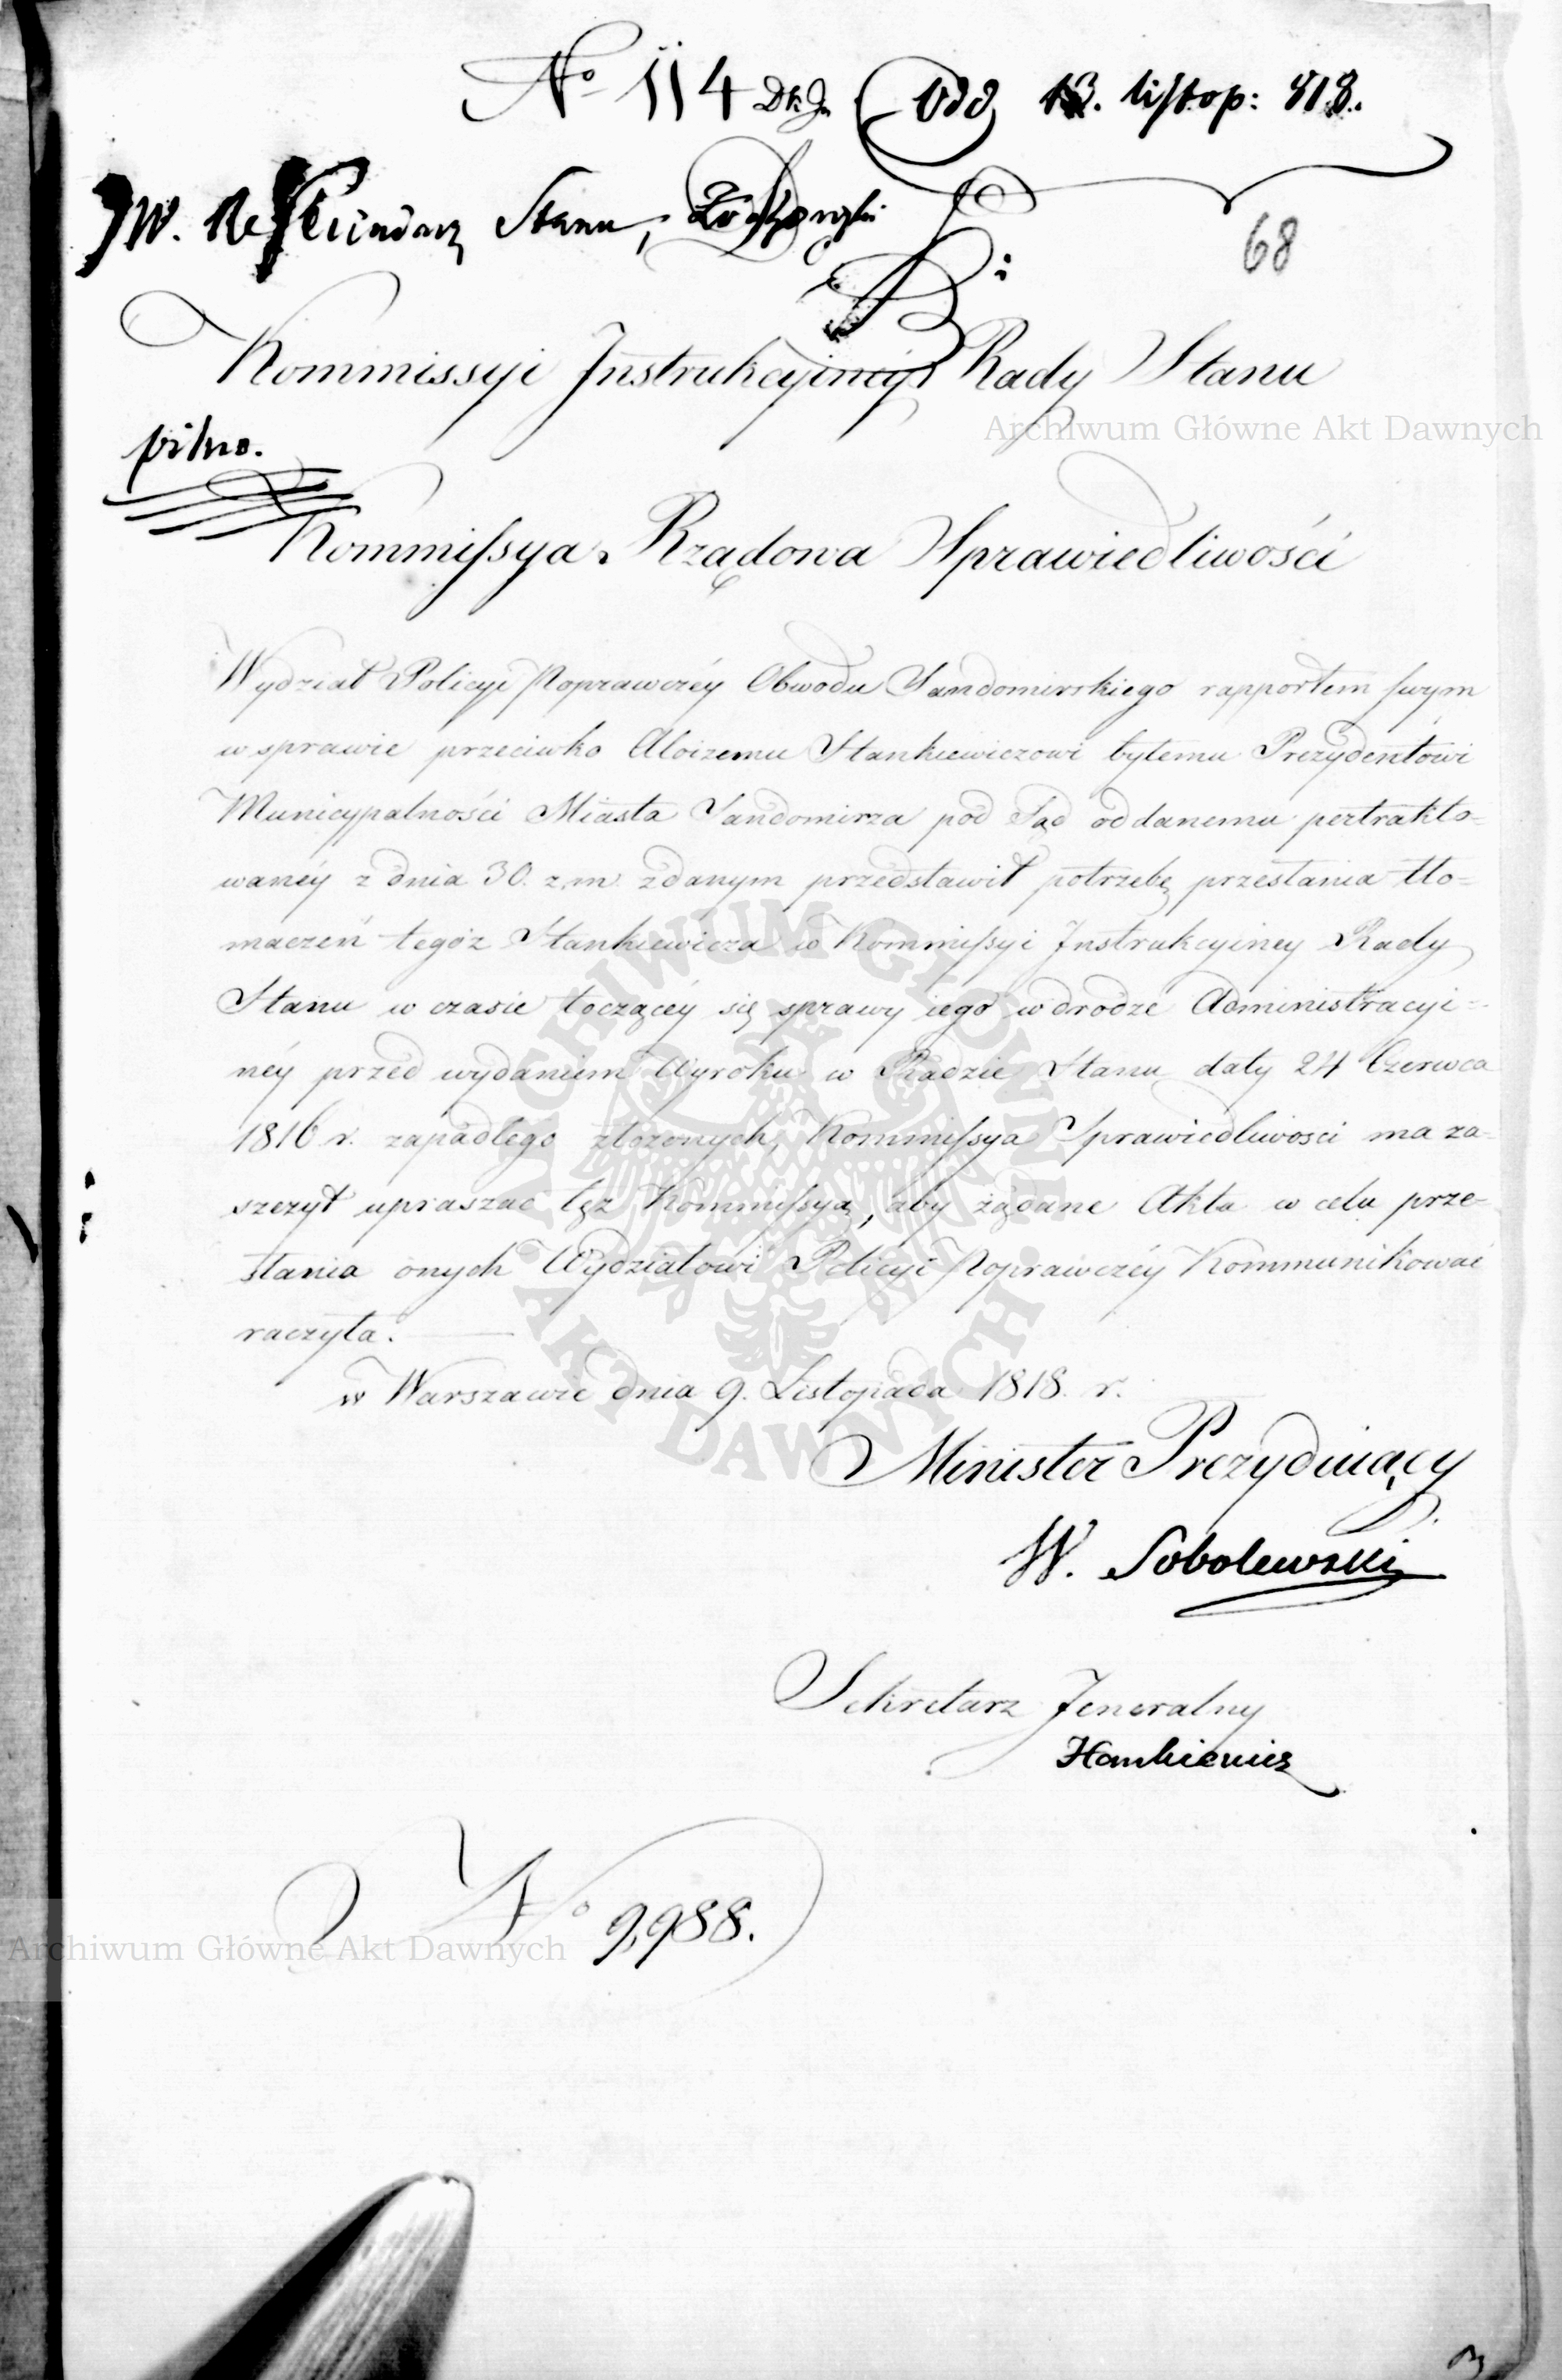 No 114 Dk.Jn. Odd 13. listop: 818.
JW. Refferendarz Stanu,
68
Kommissyi Instrukcyinéy Rady Stanu
pilno.
Kommissya Rządowa Sprawiedliwości
Wydział Policyi Poprawczéy Obwodu Sandomirskiego rapportem swym
w sprawie przeciwko Aloizemu Stankiewiczowi byłemu Prezydentowi
Municypalności Miasta Sandomirza pod Sąd oddanemu pertrakto=
wanéy z dnia 30. z.m. zdanym przedstawił potrzebę przesłania tło=
maczeń tegoż Stankiewicza w Kommissyi Instrukcyiney Rady
Stanu w czasie toczącéy się sprawy iego w drodze Administracyi=
néy przed wydaniem Wyroku w Radzie Stanu daty 24 Czerwca
1816 r. zapadłego złożonych, Kommissya Sprawiedliwosci ma za-
szczyt upraszac tęż Kommissyą, aby żądane Akta w celu prze-
słania onych Wydziałowi Policyi Poprawczéy Kommunikować
raczyła.
w Warszawie dnia 9. Listopada 1818. r.
Minister Prezyduiący
W. Sobolewski
Sekretarz Jeneralny
Hankiewicz
No 9,988.
Archiwum Główne Akt Dawnych
Archiwum Główne Akt Dawnych
ARCHIWUM GŁÓWNE
AKT DAWNYCH